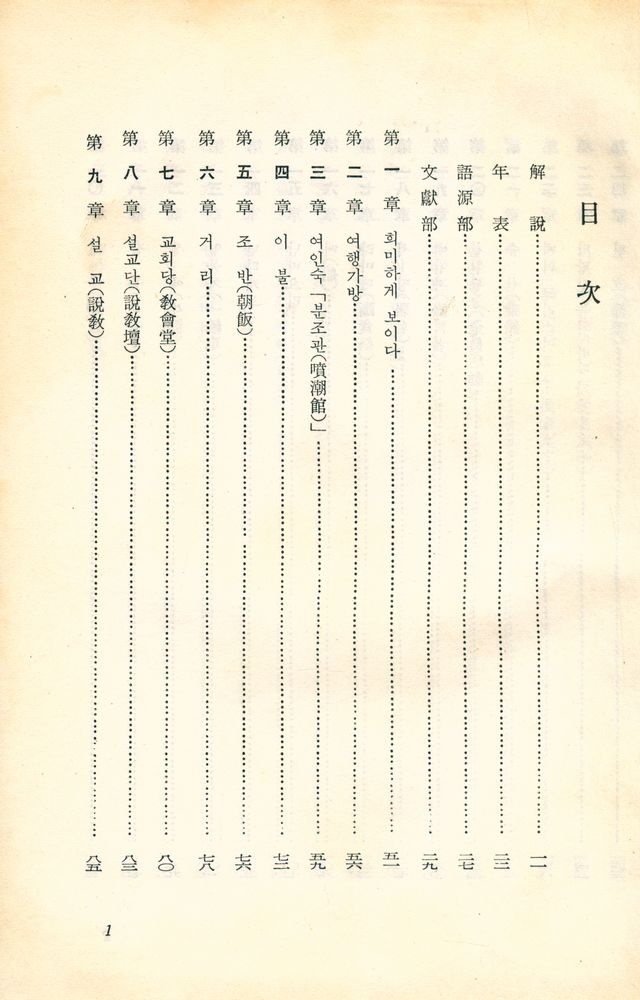 目次
解說……一一
年表……二三
語源部……二七
文獻部……二九
第一章 희미하게 보이다……五一
第二章 여행가방……五六
第三章 여인숙「분조관(噴潮館)」……五九
第四章 이불……七三
第五章 조반(朝飯)……七六
第六章 거리……七八
第七章 교회당(敎會堂)……八〇
第八章 설교단(說敎壇)……八三
第九章 설교(說敎)……八五
1